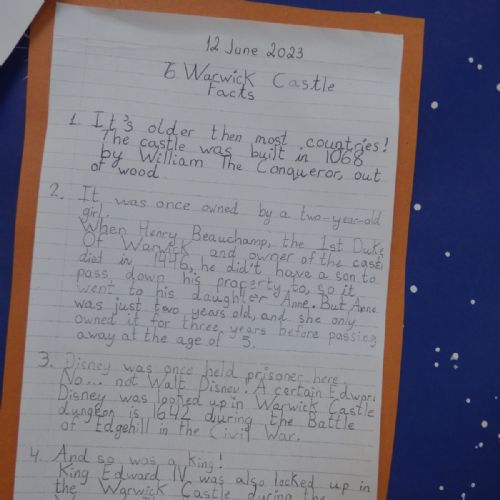 12 June 2023
6 Warwick Castle
Facts
1. It's older then most countries!
The castle was built in 1068
by William The Conqueror, out
of wood.
2. It was once owned by a two-year-old
girl.
When Henry Beauchamp, the 1st Duke
Of Warwick and owner of the castl
died in 1446, he didn't have a son to
pass down his property to, so it
went to his daughter Anne. But Anne
was just two years old, and she only
owned it for three years before passing
away at the age of 5.
3. Disney was once held prisoner here.
No... not Walt Disney. A certain Edwar
Disney was locked up in Warwick Castle
dungeon is 1642 during the Battle
of Edgehill in the Civil War.
4. And so was a king!
King Edward IV was also locked up in
the Warwick Castle during the